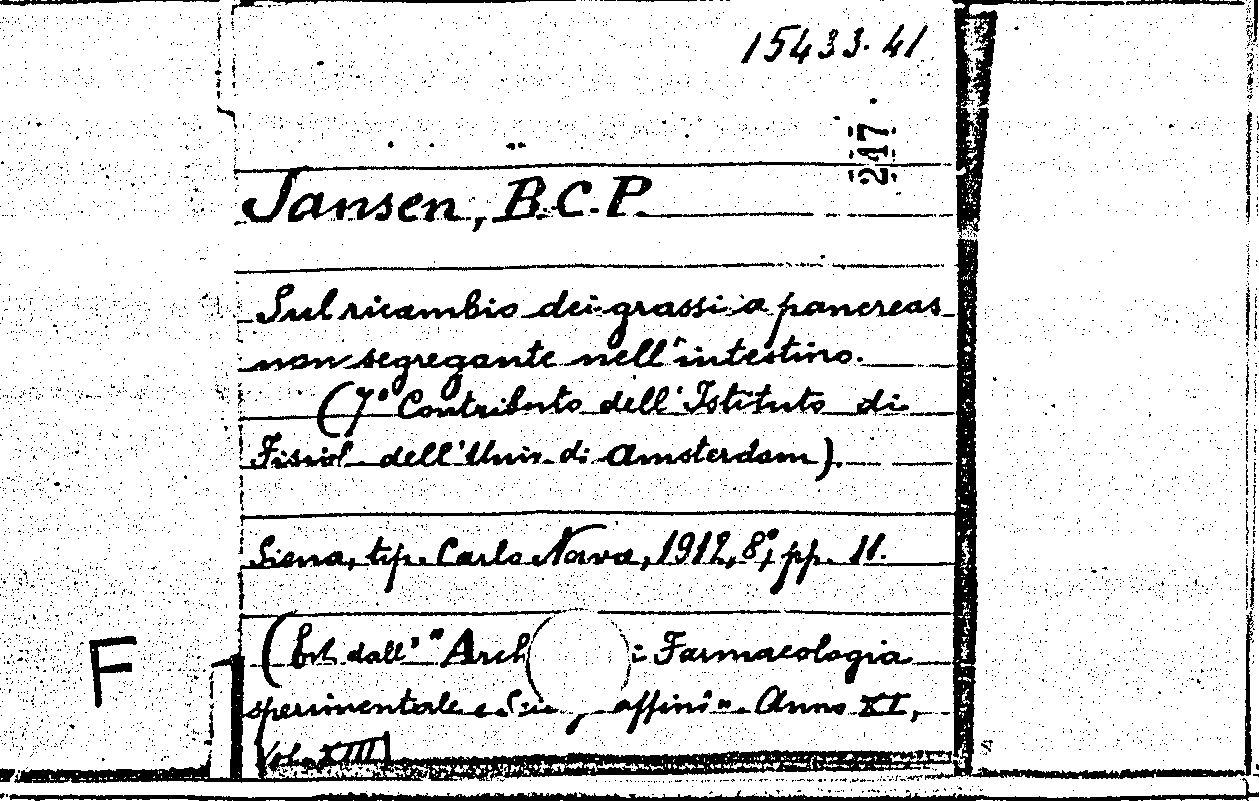 15433.41
247.
Jansen, B.C.P.
Sul ricambio dei grassi a pancreas
non segregante nell'intestino.
(7° Contributo dell'Istituto di
Fisiol. dell'Univ. di Amsterdam).
Siena, tip. Carlo Nava, 1912, 8°, pp. 11.
(Est. dall' "Arch Farmacologia
sperimentale e affini". Anno XI,
Vol. XIII)
F